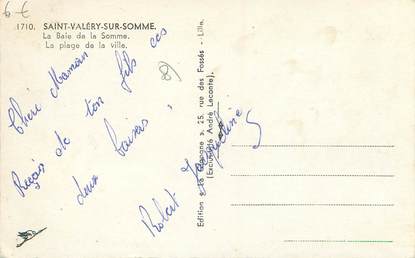 6 €
1710. SAINT-VALÉRY-SUR-SOMME.
La Baie de la Somme.
La plage de la ville.
89
Chère Maman
Reçois de ton fils ces
deux baisers.
Robert Jacqueline
Edition « La Cigogne », 25, rue des Fossés - Lille.
(Exclusivité André Leconte).